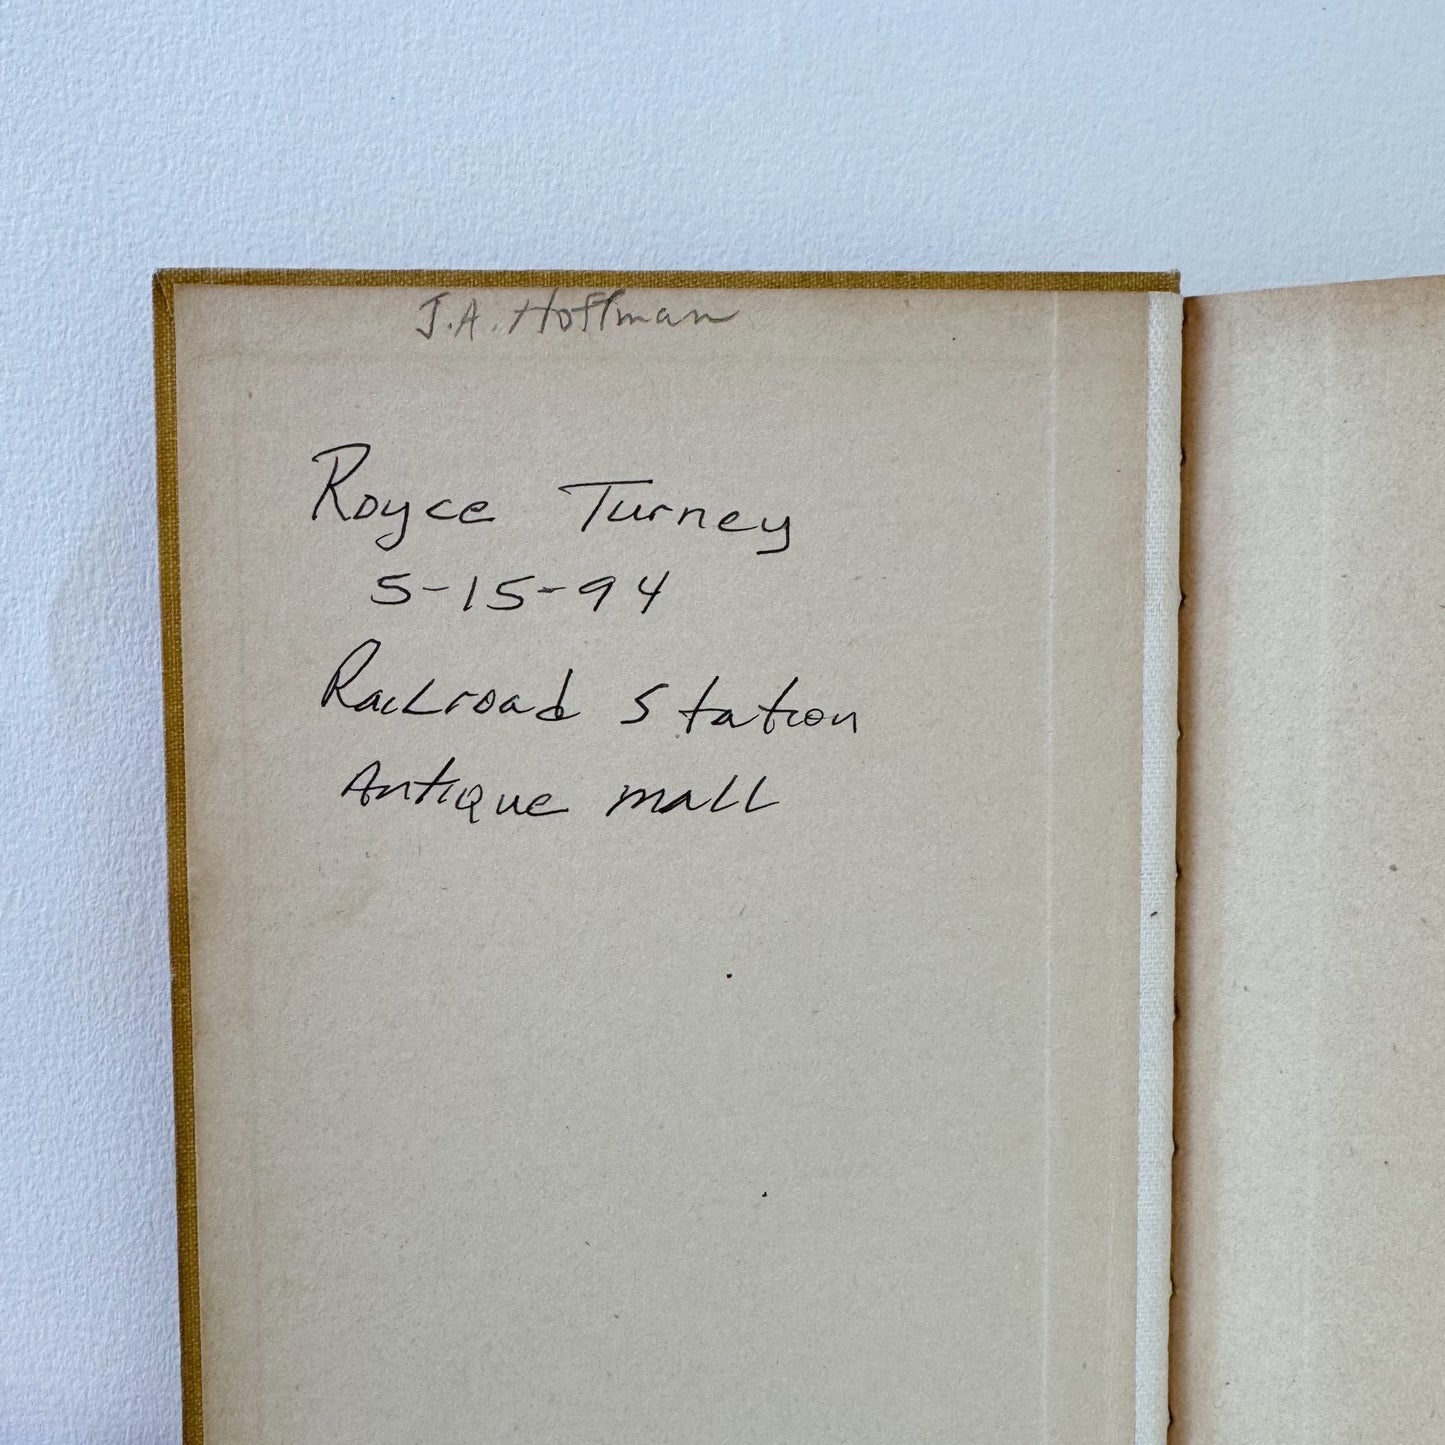 J.A. Hoffman
Royce Turney
5-15-94
Railroad Station
Antique mall